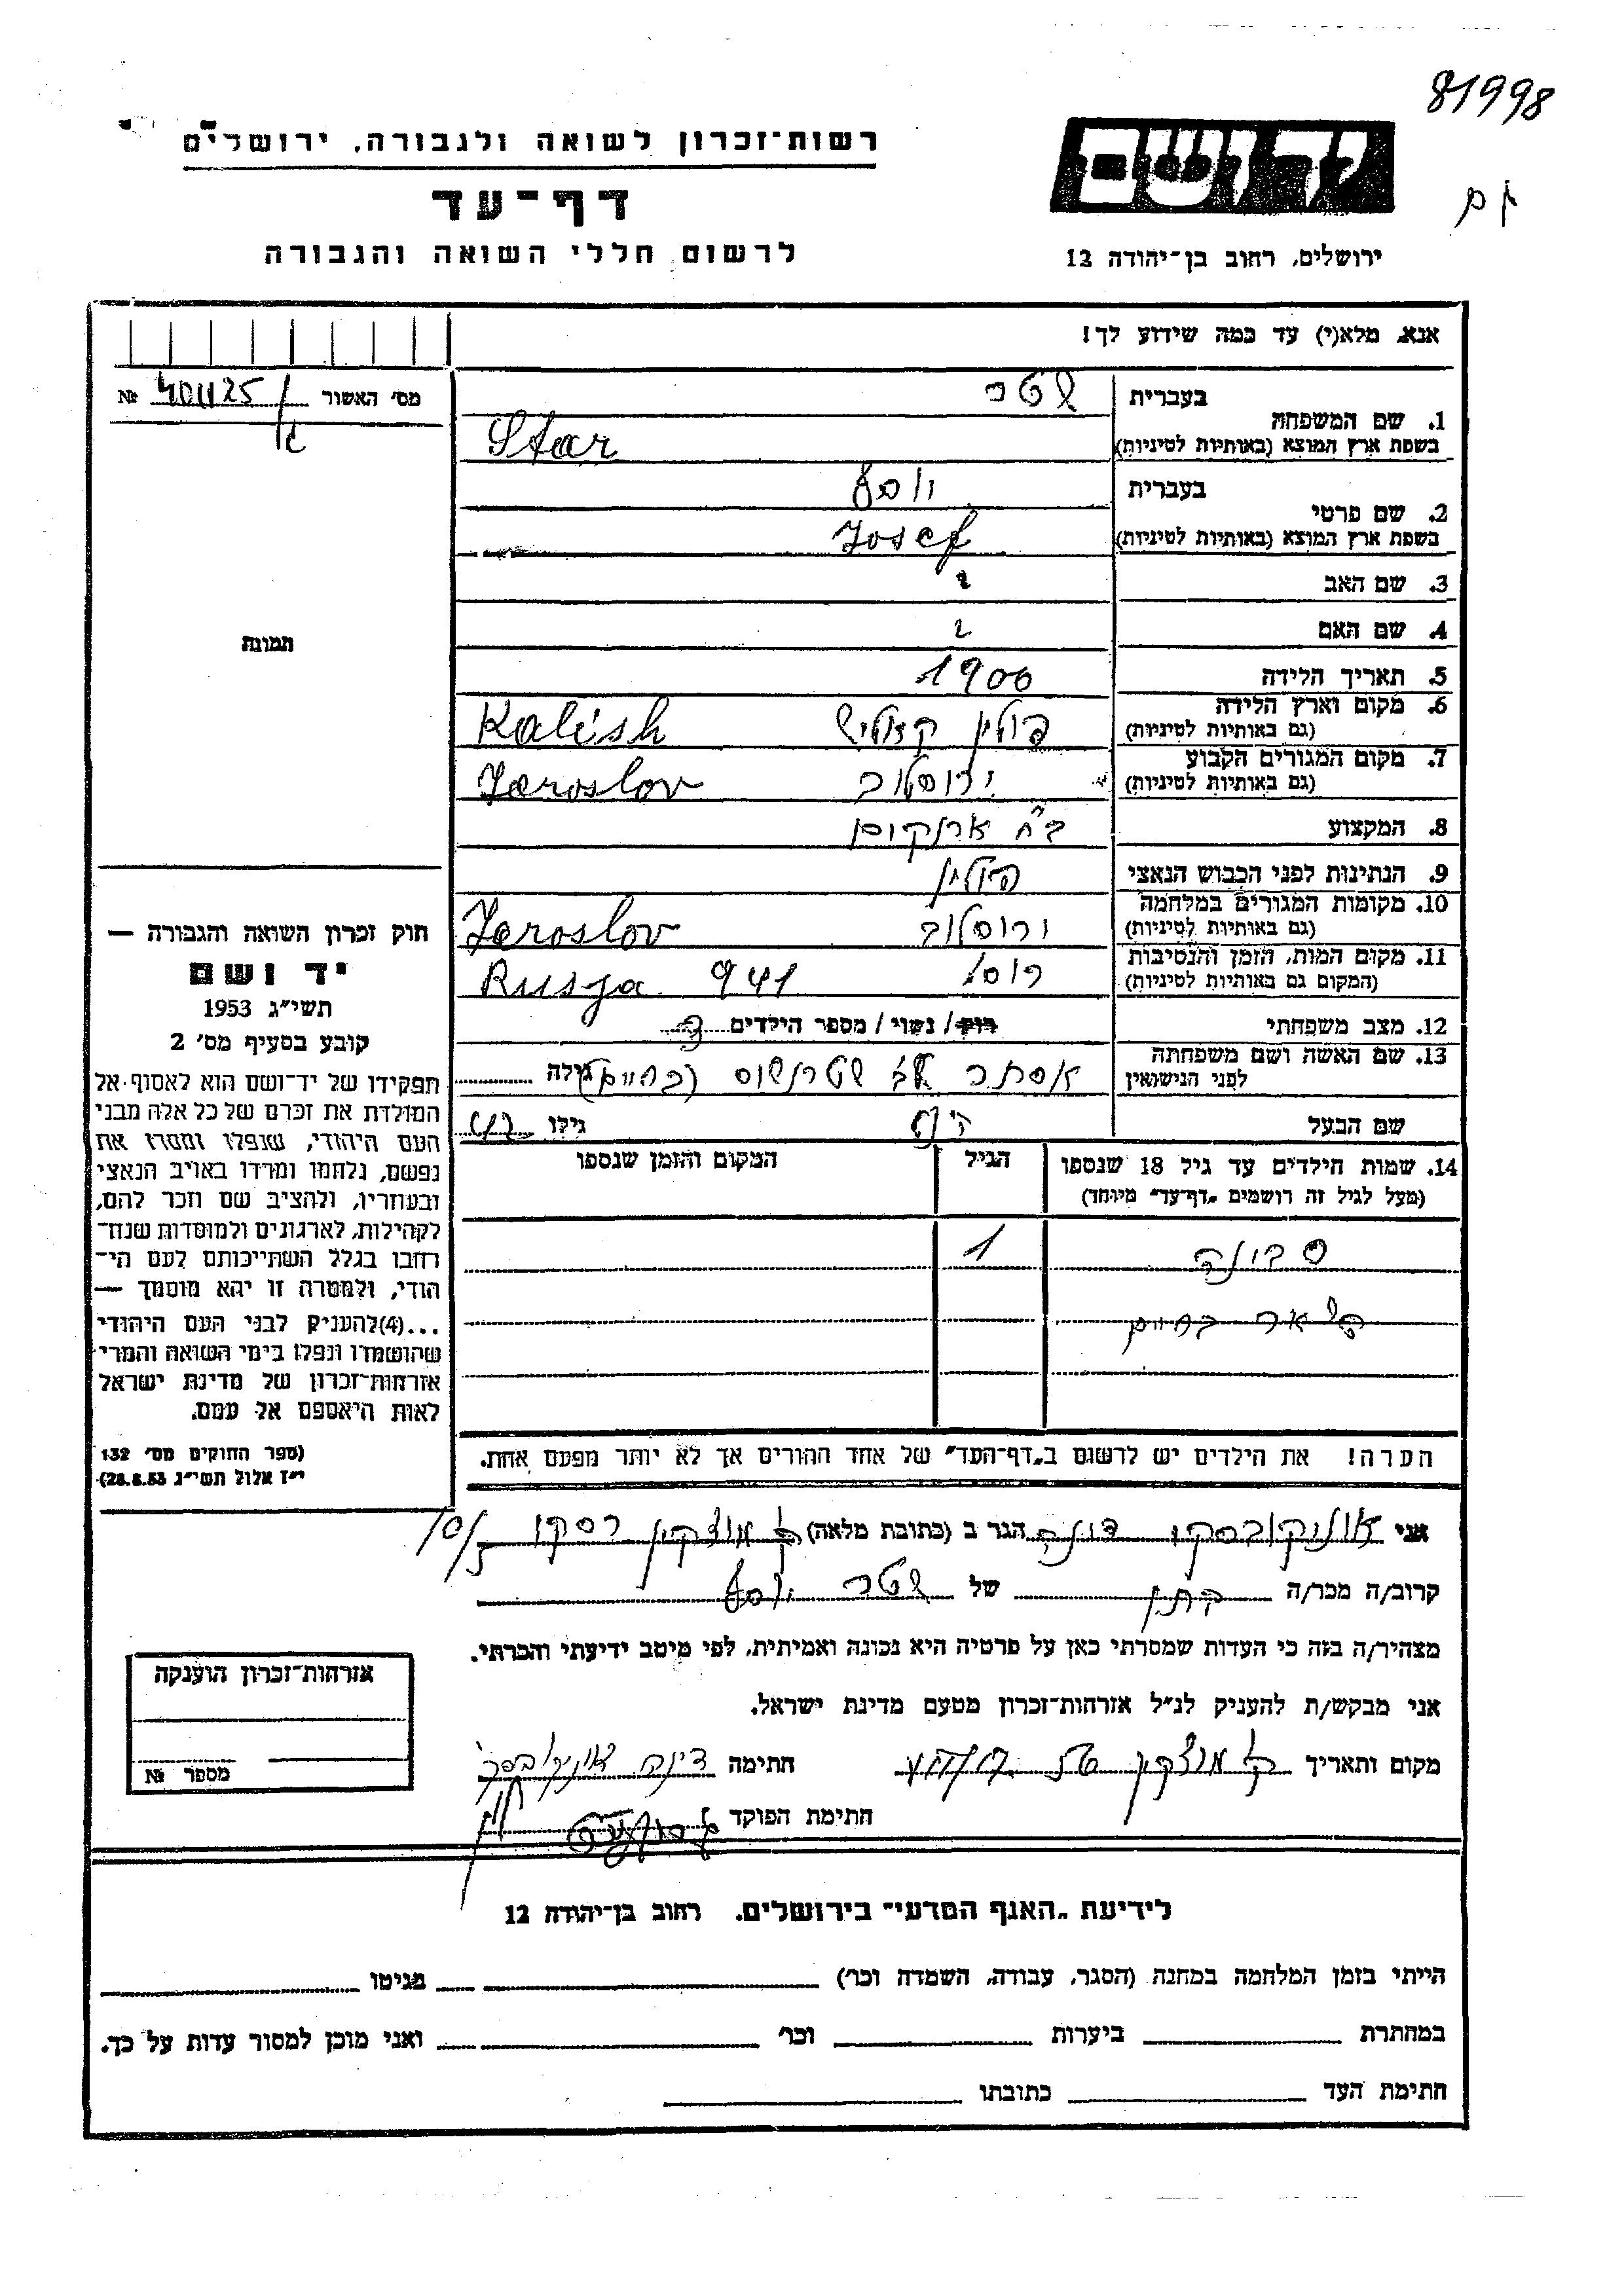 81998
רשות־זכרון לשואה ולגבורה, ירושלים
דף־עד
לרשום חללי השואה והגבורה
יד ושם
ירושלים, רחוב בן־יהודה 12
אנא, מלא(י) עד כמה שידוע לך!
מס׳ האשור № 401125
בעברית שטר
1. שם המשפחה
בשפת ארץ המוצא (באותיות לטיניות) Star
בעברית יוסף
2. שם פרטי
בשפת ארץ המוצא (באותיות לטיניות) Josef
3. שם האב ?
4. שם האם ?
5. תאריך הלידה 1900
6. מקום וארץ הלידה פולין קאליש Kalish
(גם באותיות לטיניות)
7. מקום המגורים הקבוע ירוסלוב Jaroslov
(גם באותיות לטיניות)
8. המקצוע
9. הנתינות לפני הכבוש הנאצי פולין
10. מקומות המגורים במלחמה ירוסלוב Jaroslov
(גם באותיות לטיניות)
11. מקום המות, הזמן והנסיבות רוסי 941 Rusja
(המקום גם באותיות לטיניות)
12. מצב משפחתי רוק / נשוי / מספר הילדים
13. שם האשה ושם משפחתה אסתר (בחיים) גילה
לפני הנישואין
שם הבעל גילו
תמונה
חוק זכרון השואה והגבורה —
יד ושם
תשי״ג 1953
קובע בסעיף מס׳ 2
תפקידו של יד־ושם הוא לאסוף אל
המולדת את זכרם של כל אלה מבני
העם היהודי, שנפלו ומסרו את
נפשם, נלחמו ומרדו באויב הנאצי
ובעוזריו, ולהציב שם וזכר להם,
לקהילות, לארגונים ולמוסדות שנח־
רחבו בגלל השתייכותם לעם הי־
הודי, ולמטרה זו יהא מוסמך —
...(4) להעניק לבני העם היהודי
שהושמדו ונפלו בימי השואה והמרי
אזרחות־זכרון של מדינת ישראל
לאות היאספם אל עמם.
(ספר החוקים מס׳ 132
י״ז אלול תשי״ג 28.8.53)
14. שמות הילדים עד גיל 18 שנספו הגיל המקום והזמן שנספו
(מעל לגיל זה רושמים „דף־עד״ מיוחד)
סבינה 1
השאר בחיים
הערה! את הילדים יש לרשום ב„דף־העד״ של אחד ההורים אך לא יותר מפעם אחת.
אני דינה הגר ב (כתובת מלאה) ק. מוצקין רסקו 10/5
קרוב/ה מכר/ה של שטר יוסף
מצהיר/ה בזה כי העדות שמסרתי כאן על פרטיה היא נכונה ואמיתית, לפי מיטב ידיעתי והכרתי.
אני מבקש/ת להעניק לנ״ל אזרחות־זכרון מטעם מדינת ישראל.
מקום ותאריך ק. מוצקין חתימה דינה
חתימת הפוקד
אזרחות־זכרון הוענקה
מספר №
לידיעת „האגף המדעי״ בירושלים, רחוב בן־יהודה 12
הייתי בזמן המלחמה במחנה (הסגר, עבודה, השמדה וכר׳) בגיטו
במחתרת ביערות וכר׳ ואני מוכן למסור עדות על כך.
חתימת העד כתובתו